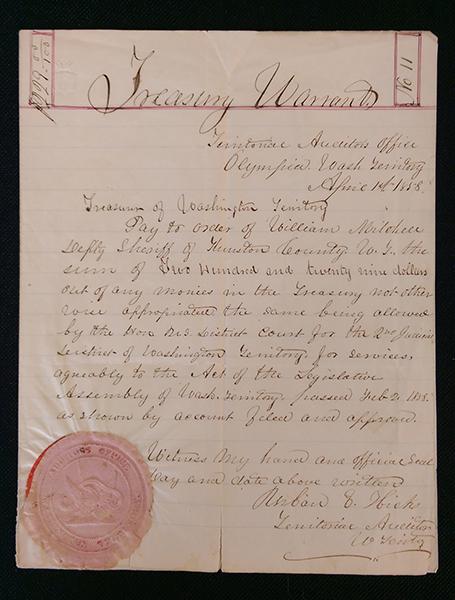 No 11
Treasury Warrant.
Territorial Auditors Office
Olympia Wash Territory
April 1st 1858.
Treasurer of Washington Territory
Pay to order of William Mitchell
Depty Sheriff of Thurston County W. T. the
sum of Two Hundred and twenty nine dollars
out of any monies in the Treasury not other
wise appropriated the same being allowed
by the Hon District Court for the 2nd Judicial
District of Washington Territory for services,
agreably to the Act of the Legislative
Assembly of Wash. Territory passed Feb 2. 1858.
as shown by account filed and approved.
Witness my hand and official Seal
day and date above written
Urban E. Hicks
Territorial Auditor
W Territy